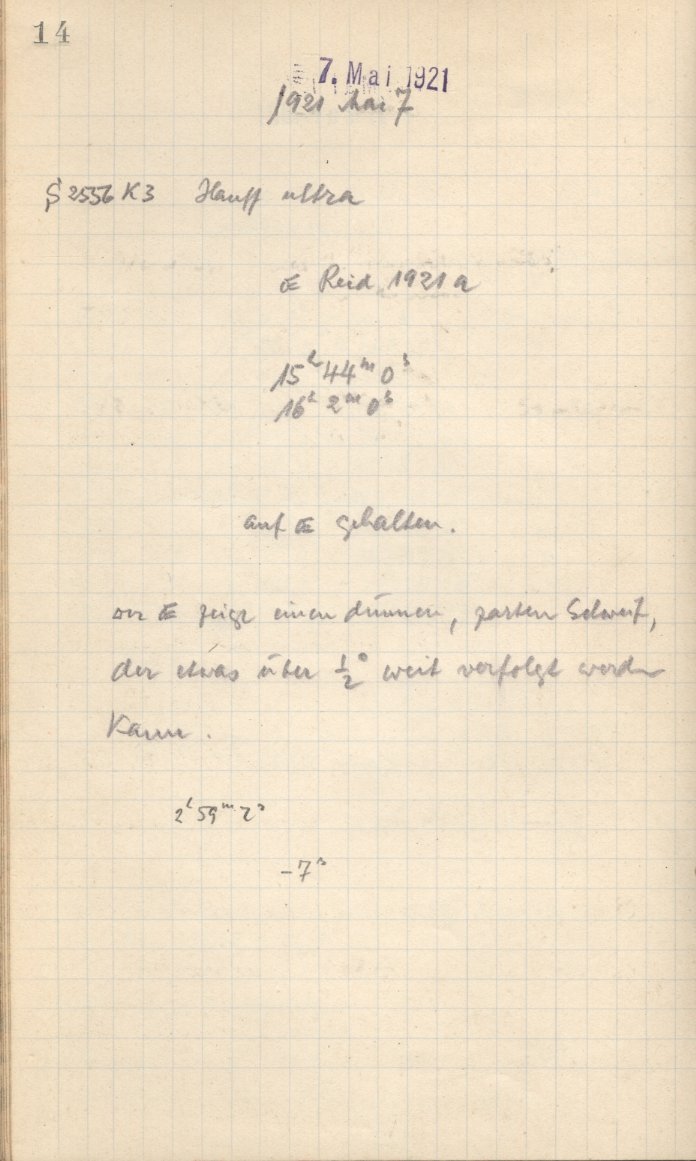 14
7. Mai 1921
1921 Mai 7
2556 K3 Hauff ultra
Reid 1921 a
15h 44m 0s
16h 2m 0s
auf gehalten.
Der zeigt einen dünnen, zarten Schweif,
der etwas über ½° weit verfolgt werden
kann.
2h 59m 2s
-7s